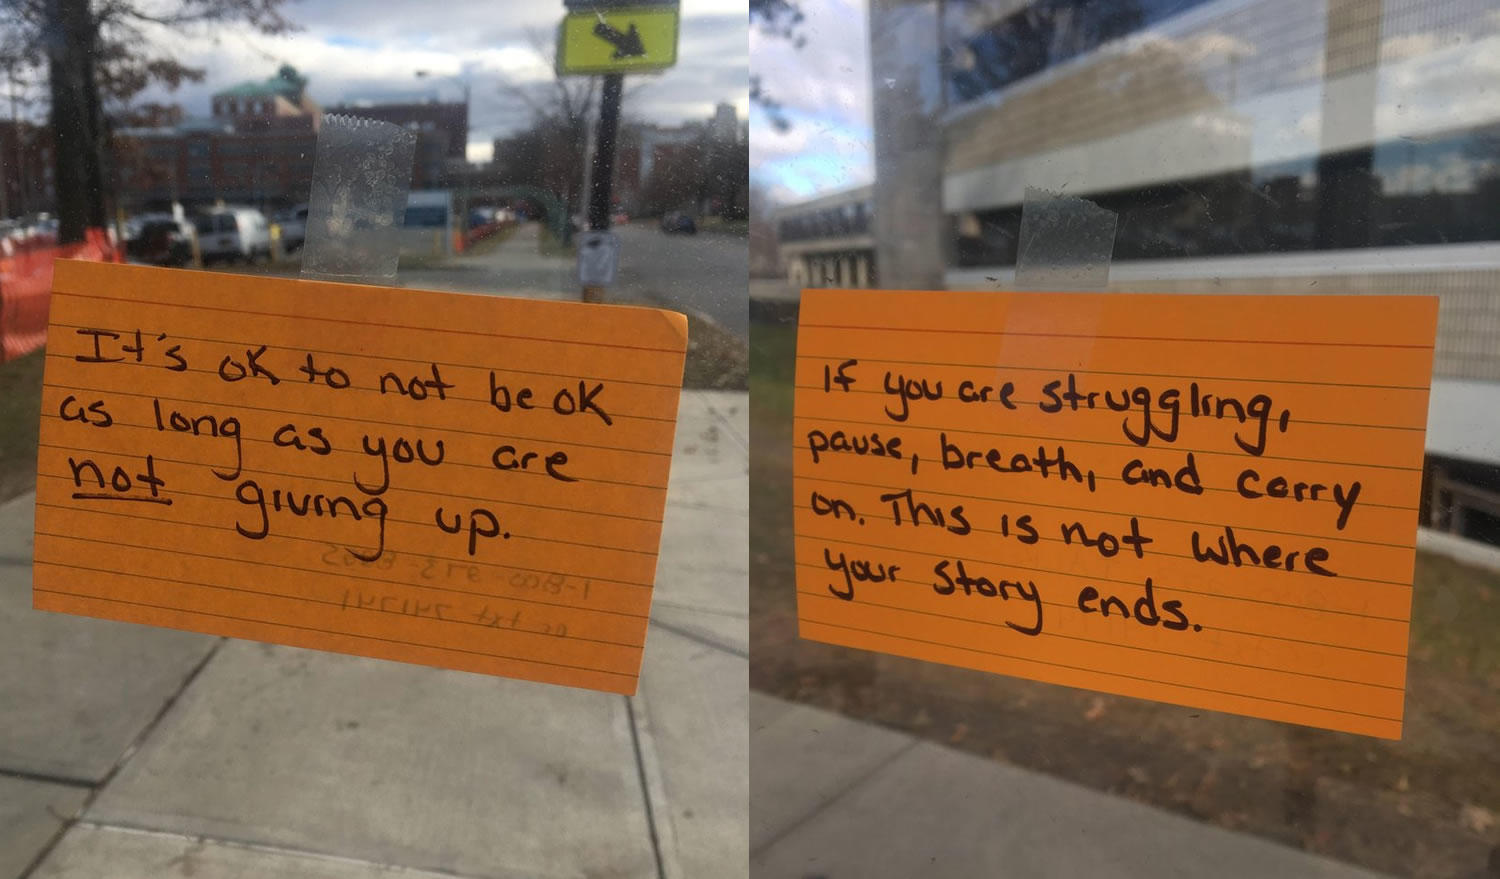 It's ok to not be ok
as long as you are
not giving up.
or txt 741741
If you are struggling,
pause, breath, and carry
on. This is not where
your story ends.